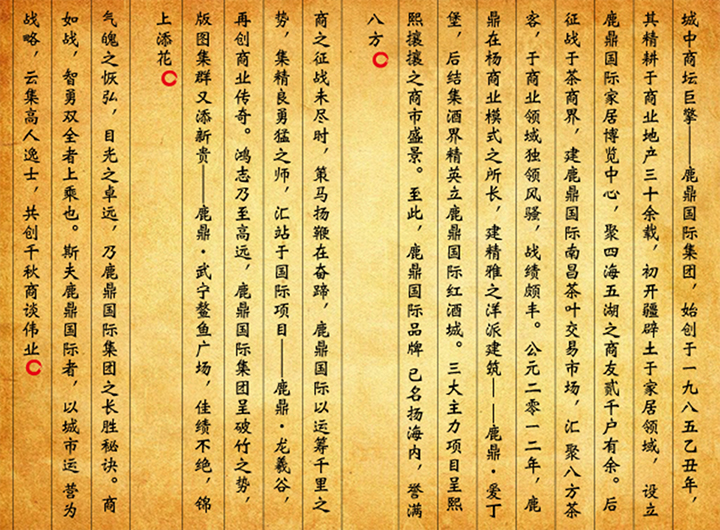 城中商坛巨擎——鹿鼎国际集团，始创于一九八五乙丑年，
其精耕于商业地产三十余载，初开疆辟土于家居领域，设立
鹿鼎国际家居博览中心，聚四海五湖之商友贰千户有余。后
征战于茶商界，建鹿鼎国际南昌茶叶交易市场，汇聚八方茶
客，于商业领域独领风骚，战绩颇丰。公元二零一二年，鹿
鼎在杨商业模式之所长，建精雅之洋派建筑——鹿鼎·爱丁
堡，后结集酒界精英立鹿鼎国际红酒城。三大主力项目呈熙
熙攘攘之商市盛景。至此，鹿鼎国际品牌已名扬海内，誉满
八方
商之征战未尽时，策马扬鞭在奋蹄，鹿鼎国际以运筹千里之
势，集精良勇猛之师，汇站于国际项目——鹿鼎·龙羲谷，
再创商业传奇。鸿志乃至高远，鹿鼎国际集团呈破竹之势，
版图集群又添新贵——鹿鼎·武宁鳌鱼广场，佳绩不绝，锦
上添花
气魄之恢弘，目光之卓远，乃鹿鼎国际集团之长胜秘诀。商
如战，智勇双全者上乘也。斯夫鹿鼎国际者，以城市运营为
战略，云集高人逸士，共创千秋商谈伟业